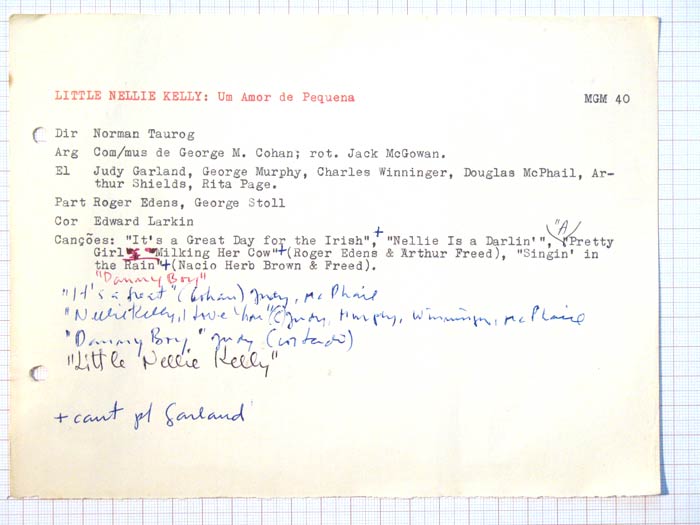 LITTLE NELLIE KELLY: Um Amor de Pequena MGM 40
Dir Norman Taurog
Arg Com/mus de George M. Cohan; rot. Jack McGowan.
El Judy Garland, George Murphy, Charles Winninger, Douglas McPhail, Ar-
thur Shields, Rita Page.
Part Roger Edens, George Stoll
Cor Edward Larkin
Canções: "It's a Great Day for the Irish",+ "Nellie Is a Darlin'", "A Pretty
Girl Milking Her Cow"+(Roger Edens & Arthur Freed), "Singin' in
the Rain"+(Nacio Herb Brown & Freed).
"Danny Boy"
"It's a Great" (Cohan) Judy, McPhail
"Nellie Kelly, I Love You" (C) Judy, Murphy, Winninger, McPhail
"Danny Boy" Judy (cortado)
"Little Nellie Kelly"
+ cant pl Garland